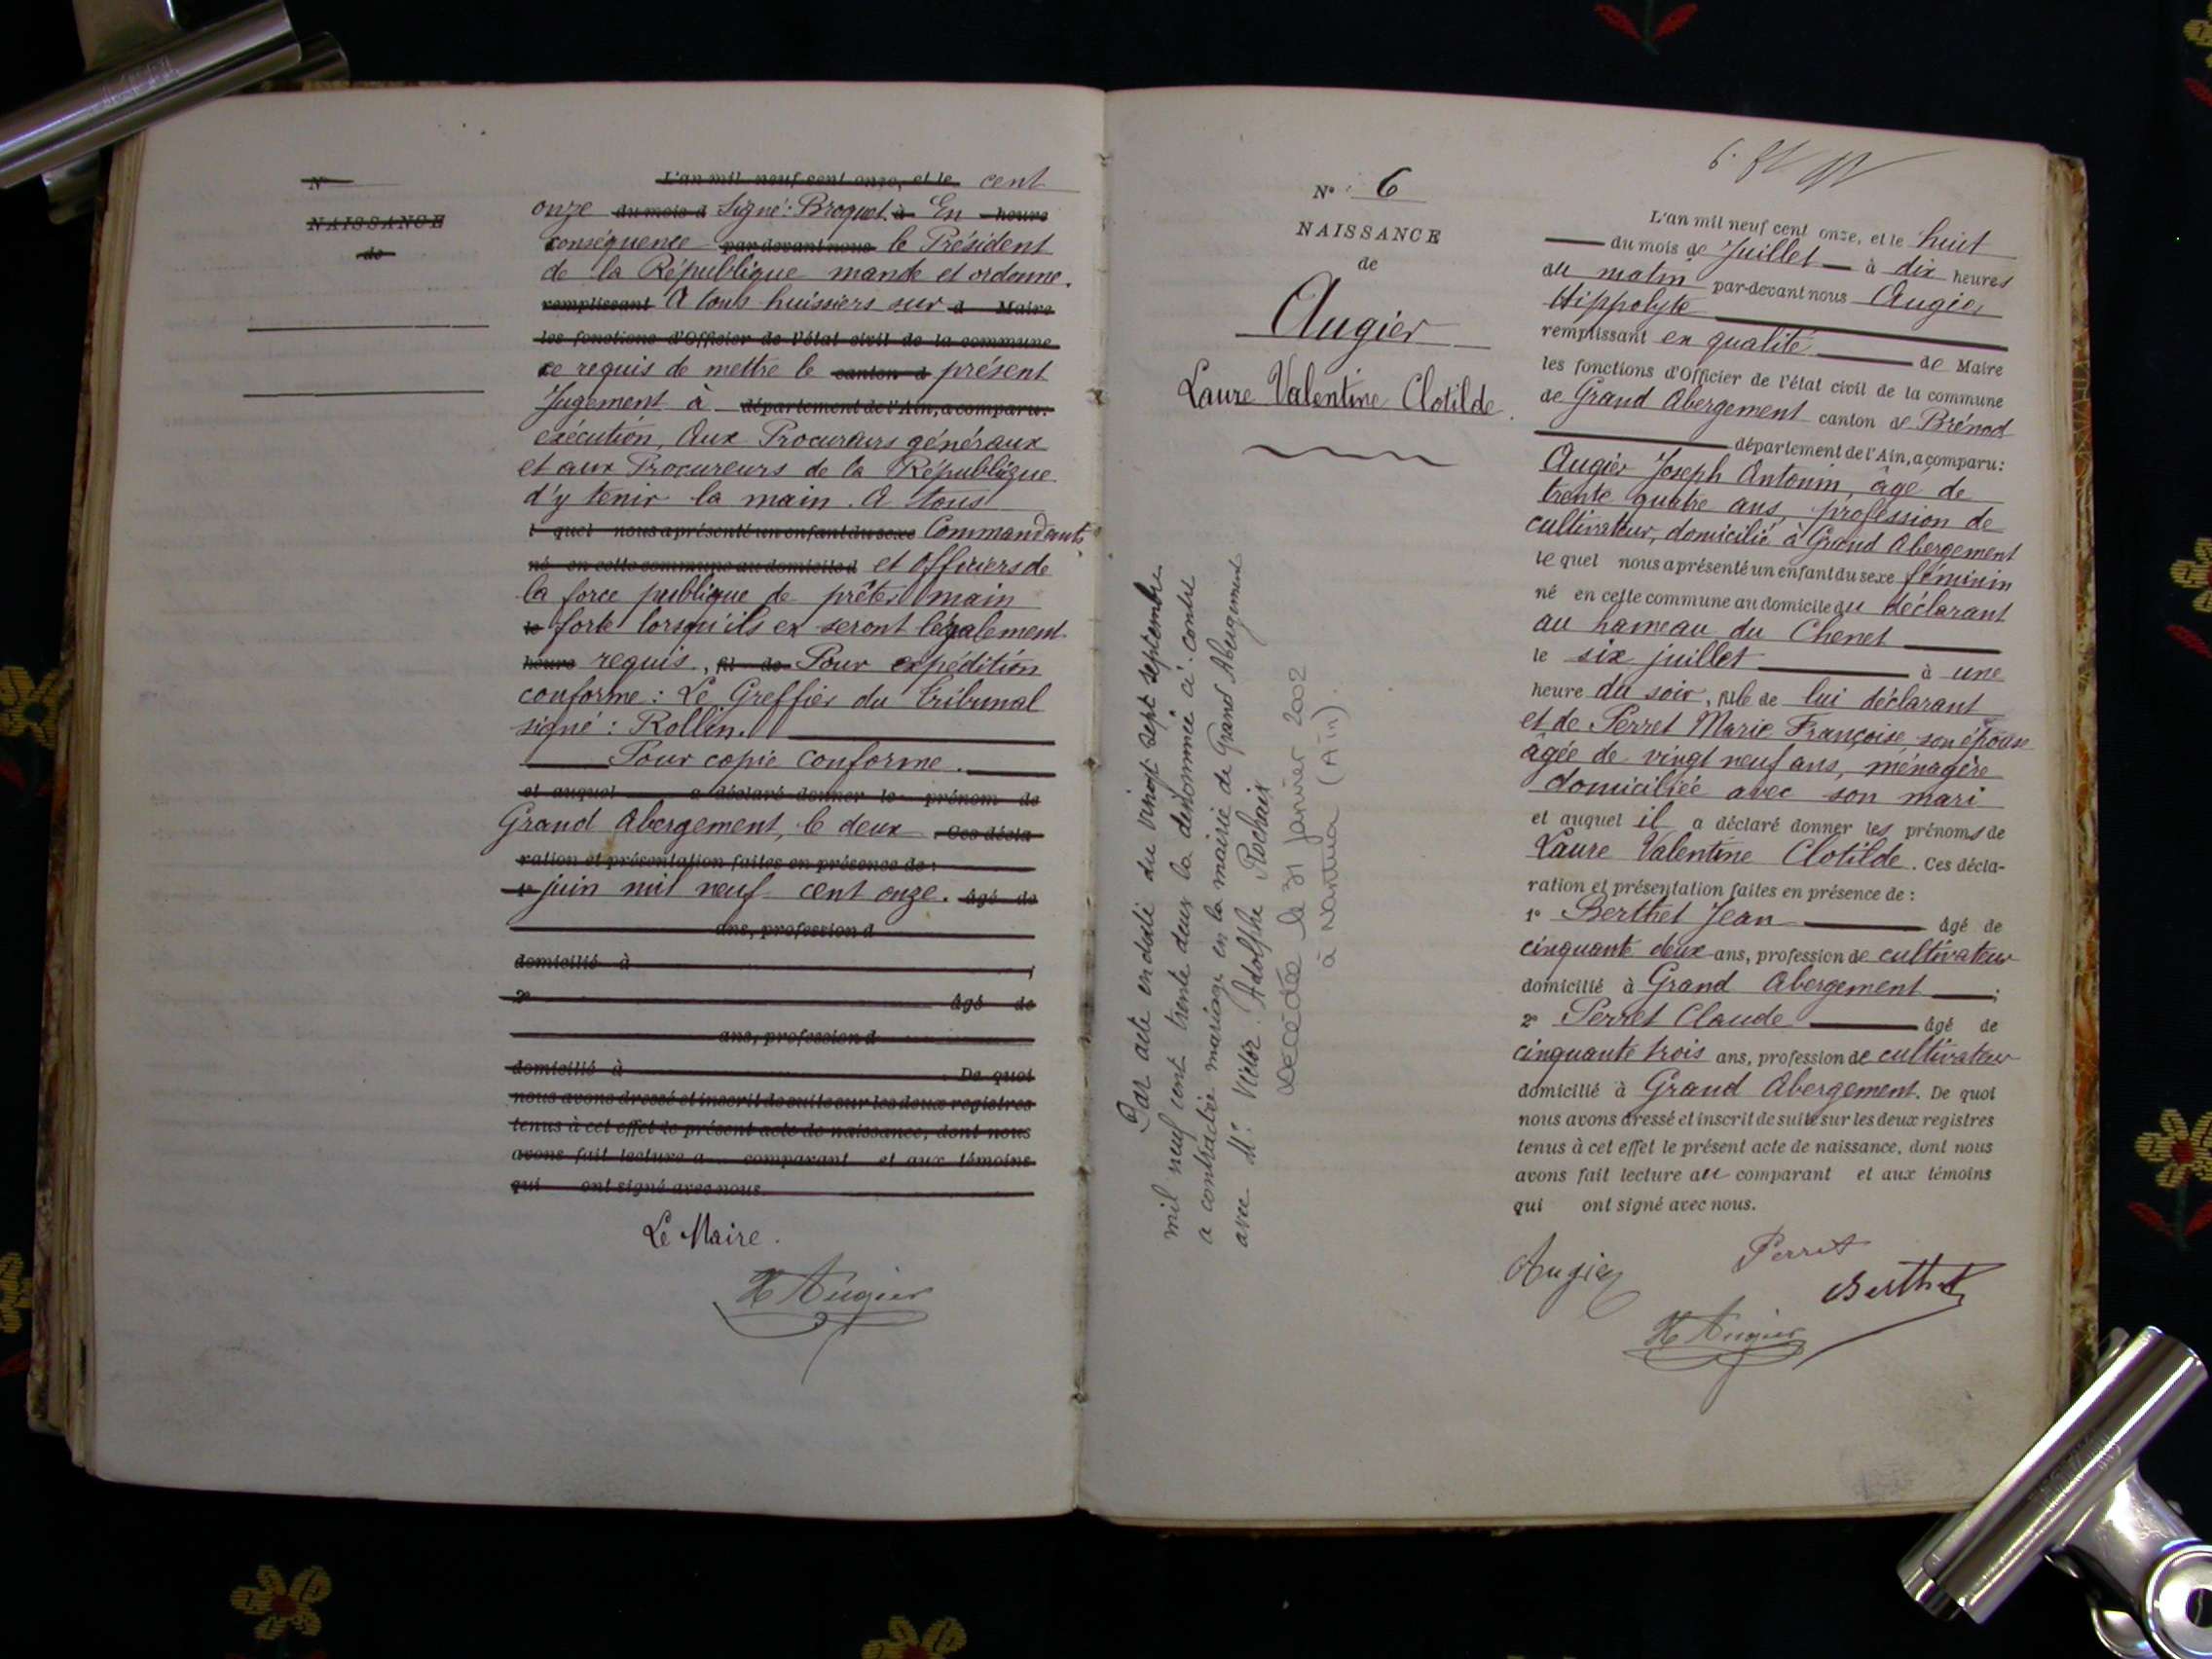 N°
NAISSANCE
de
L'an mil neuf cent onze, et le cent
onze du mois d Signé: Broquet. à En heure
conséquence par-devant nous le Président
de la République mande et ordonne.
remplissant A tous huissiers sur d Maire
les fonctions d'Officier de l'état civil de la commune
ce requis de mettre le canton d présent
Jugement à département de l'Ain, a comparu:
exécution, Aux Procureurs généraux
et aux Procureurs de la République
d'y tenir la main. A tous
l quel nous a présenté un enfant du sexe Commandants
né en cette commune au domicile d et Officiers de
la force publique de prêter main
le forte lorsqu'ils en seront légalement
heure requis, fil de Pour expédition
conforme: Le Greffier du tribunal
signé: Rollin.
Pour copie conforme.
et auquel a déclaré donner le prénom de
Grand Abergement, le deux . Ces décla-
ration et présentation faites en présence de:
1° juin mil neuf cent onze. âgé de
ans, profession d
domicilié à ;
2° âgé de
ans, profession d
domicilié à . De quoi
nous avons dressé et inscrit de suite sur les deux registres
tenus à cet effet le présent acte de naissance, dont nous
avons fait lecture a comparant et aux témoins
qui ont signé avec nous.
Le Maire.
H Augier
N° 6
NAISSANCE
de
Augier
Laure Valentine Clotilde.
Par acte en date du vingt sept septembre
mil neuf cent trente deux la dénommée ci-contre
a contractée mariage en la mairie de Grand Abergement
avec Mr. Victor Adolphe Rochaix
Décédée le 31 janvier 2002
à Nantua (Ain).
6.
L'an mil neuf cent onze, et le huit
du mois de Juillet à dix heures
du matin par-devant nous Augier
Hippolyte
remplissant en qualité de Maire
les fonctions d'Officier de l'état civil de la commune
de Grand Abergement canton de Brénod
département de l'Ain, a comparu:
Augier Joseph Antonin, âgé de
trente quatre ans, profession de
cultivateur, domicilié à Grand Abergement
le quel nous a présenté un enfant du sexe féminin
né en cette commune au domicile du déclarant
au hameau du Chenet
le six juillet à une
heure du soir, fille de lui déclarant
et de Perret Marie Françoise son épouse
âgée de vingt neuf ans, ménagère
domiciliée avec son mari
et auquel il a déclaré donner les prénoms de
Laure Valentine Clotilde. Ces décla-
ration et présentation faites en présence de:
1° Berthet Jean âgé de
cinquante deux ans, profession de cultivateur
domicilié à Grand Abergement ;
2° Perret Claude âgé de
cinquante trois ans, profession de cultivateur
domicilié à Grand Abergement. De quoi
nous avons dressé et inscrit de suite sur les deux registres
tenus à cet effet le présent acte de naissance, dont nous
avons fait lecture au comparant et aux témoins
qui ont signé avec nous.
Augier Perret
Berthet
H Augier